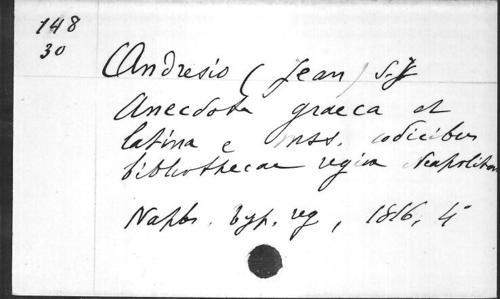 148
30
Andresio (Jean) S.J
Anecdota graeca et
latina e mss. codicibus
bibliothecae regiae Neapolitan
Naples. typ. reg, 1816, 4°